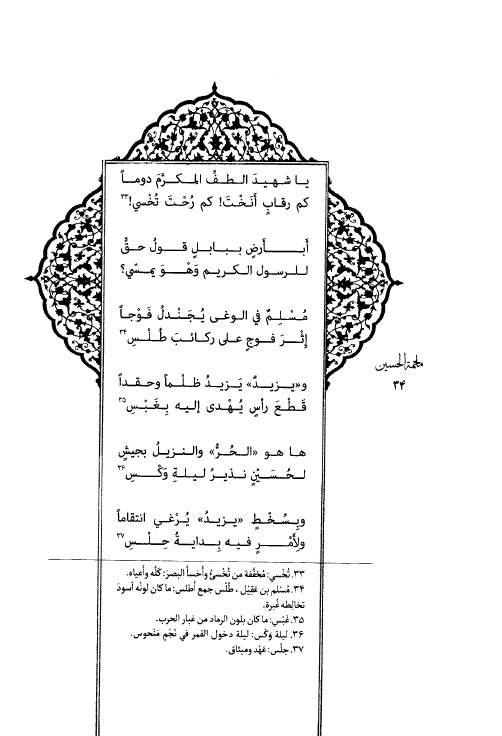 يا شهيدَ الـطـفِّ المـكـرَّمَ دوماً
كم رقابٍ أنَخْتَ! كم رُحْتَ تُخْسي!٣٣
أبــأرضٍ بـبـابـلٍ قـولُ حـقٍّ
لـلـرسول الـكـريـم وَهْـوَ يمـسّي؟
مُـسْـلِـمٌ في الـوغـى يُـجَـنْـدلُ فَـوْجـاً
إِثْـرَ فـوجٍ على ركـائـبَ طُـلْـسِ٣٤
و«يـزيـدٌ» يَـزيـدُ ظـلـمـاً وحـقـداً
قَـطْـعَ رأسٍ يُـهْـدى إليـه بِـغَـبْـسِ٣٥
هـا هـو «الـحُـرُّ» والـنـزيـلُ بجيشٍ
لـحُـسَـيْـنٍ نـذيـرُ لـيـلـةِ وَكْـسِ٣٦
وبِـسُـخْـطٍ «يـزيـدُ» يُـرْغـي انـتـقـامـاً
ولِأمْـرٍ فـيـه بـدايـةُ حِـلْـسِ٣٧
ملحمة الحسين
٣٤
٣٣. تُخْسي: مُخفَّفة من تُخْسِئُ وأخسأ البصرَ: كلَّه وأعياه.
٣٤. مُسْلم بن عَقِيْل ، طُلْس جمع أطلس: ما كان لونُه أسودَ
تخالِطه غُبرة.
٣٥. غَبْس: ما كان بلون الرماد من غبار الحرب.
٣٦. ليلة وَكْس: ليلة دخول القمر في نَجْمٍ مَنْحوس.
٣٧. حِلْس: عَهْد وميثاق.